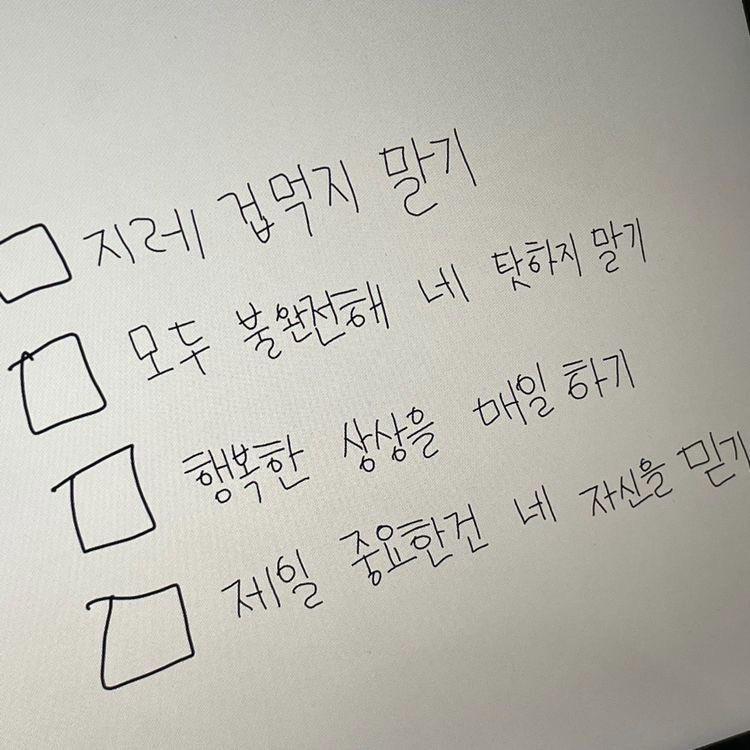 지레 겁먹지 말기
모두 불완전해 네 탓하지 말기
행복한 상상을 매일 하기
제일 중요한건 네 자신을 믿기